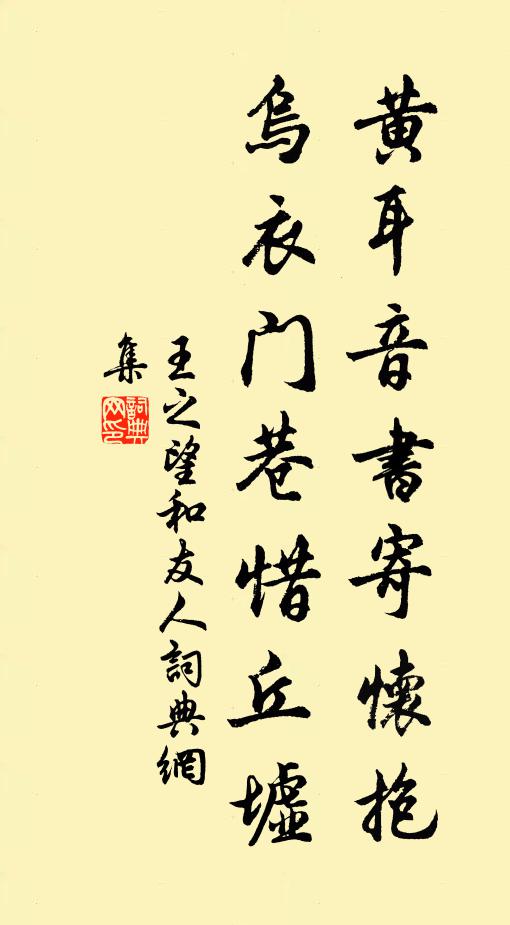 黄耳音書寄懷抱
烏衣門巷惜丘墟
王之望和友人詞典網
集
詞典
网印